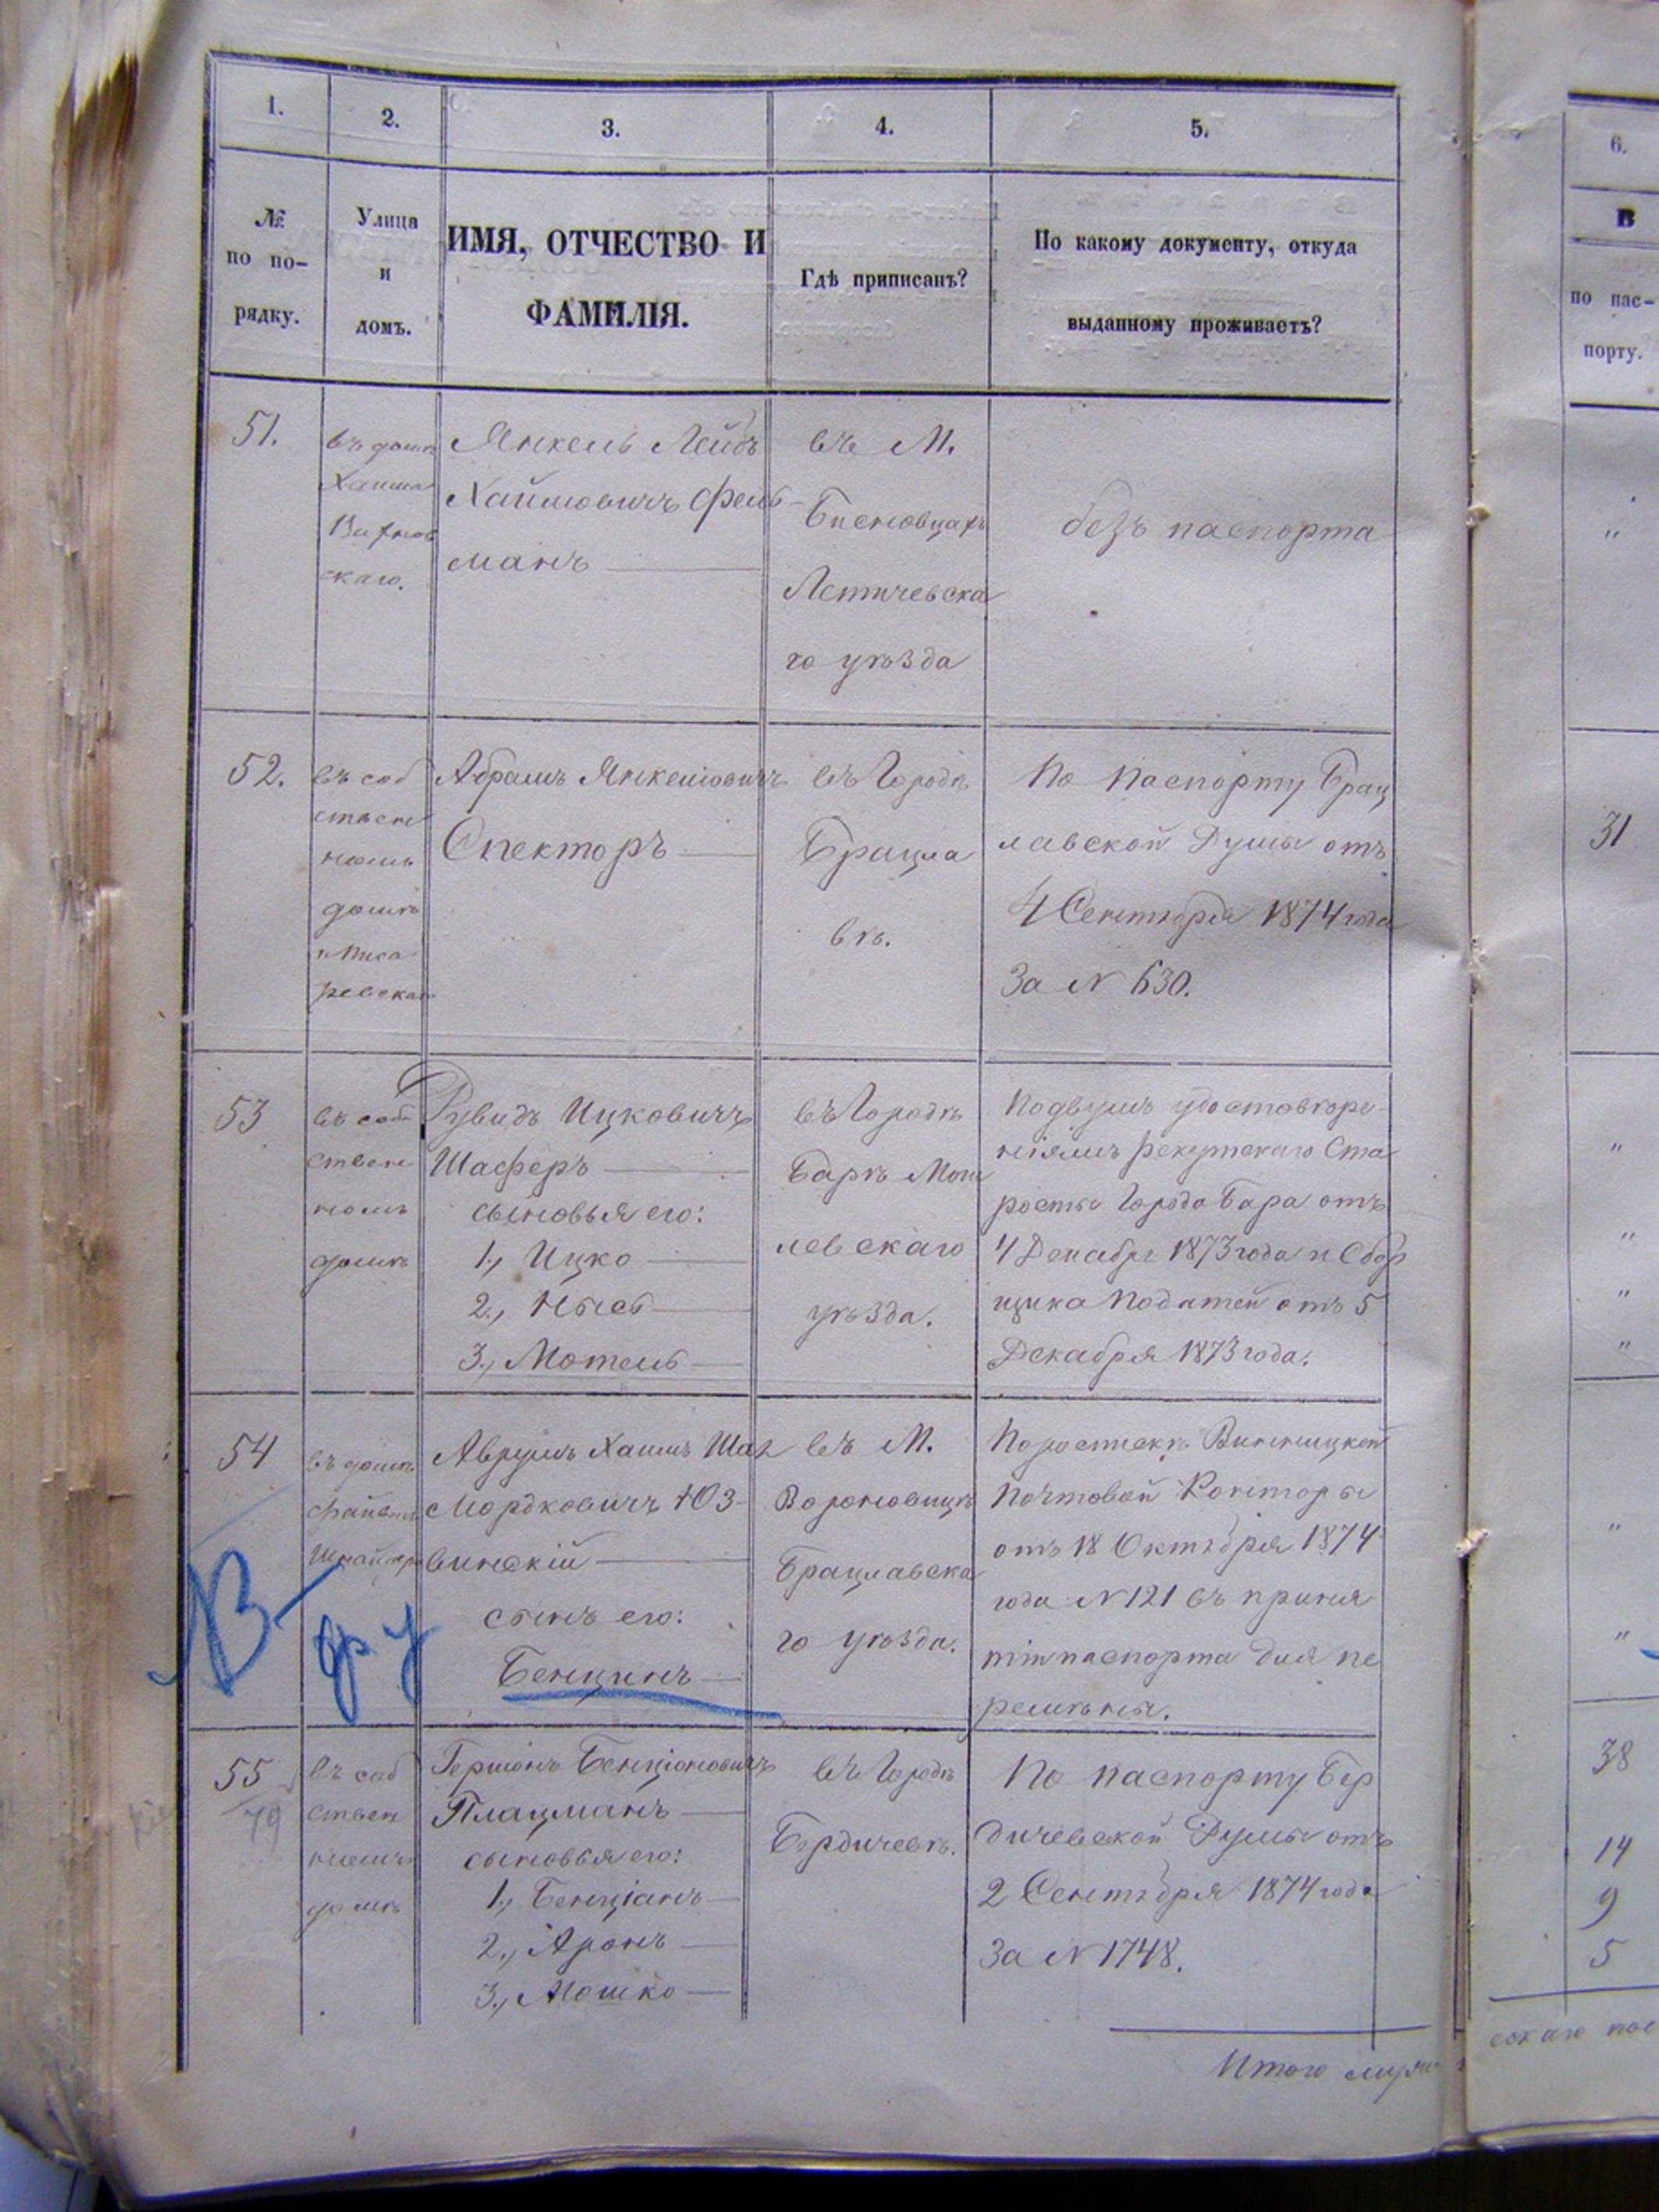 1.
2.
3.
4.
5.
6.
№
по по-
рядку.
Улица
и
домъ.
ИМЯ, ОТЧЕСТВО И
ФАМИЛІЯ.
Гдѣ приписанъ?
По какому документу, откуда
выданному проживаетъ?
В
по пас-
порту.
51.
въ домѣ
Хаима
скаго.
Янкель Лейбъ
Хаимовичъ Фель-
манъ
въ М.
Бисновцахъ
Летичевска
го уѣзда
безъ паспорта
"
52.
въ соб
ствен
номъ
домѣ
Писа
ревская
Абрамъ Янкеліовичъ
Спекторъ
въ Городѣ
Брацла
вѣ.
По паспорту Брац
лавской Думы отъ
4 Сентября 1874 года
За N 630.
31
53
въ соб
ствен
номъ
домѣ
Рувидъ Ицковичъ
Шаферъ
сыновья его:
1., Ицко
2., Нысь
3., Мотель
въ Городѣ
Барѣ Моги
левскаго
уѣзда.
По двумъ удостовѣре-
ніямъ рекутскаго Ста
росты Города Бара отъ
4 Декабря 1873 года и Сбор
щика Податей отъ 5
Декабря 1873 года.
"
"
"
"
54
въ домѣ
Шнайдер
Аврумъ Хаимъ Шая
Мордковичъ Юз-
винскій
сынъ его:
Бенцинъ
въ М.
Вороновицѣ
Брацлавска
го уѣзда.
По роспискѣ Винницкой
Почтовой Конторы
отъ 18 Октября 1874
года N 121 въ приня
тіи паспорта для пе
ремѣны.
"
"
В
др у
55
79
въ соб
ствен
номъ
домѣ
Гершонъ Бенціоновичъ
Плацманъ
сыновья его:
1., Бенціанъ
2., Аронъ
3., Мошко
въ Городѣ
Бердичевѣ.
По паспорту Бер
дичевской Думы отъ
2 Сентября 1874 года
За N 1748.
38
14
9
5
Итого